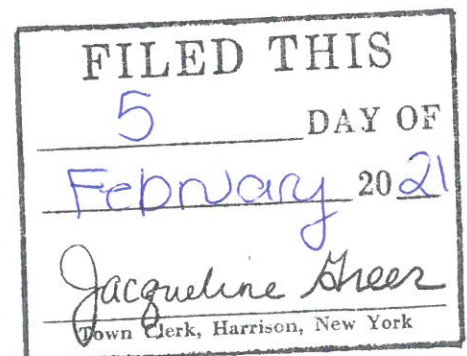 FILED THIS
5 DAY OF
February 2021
Jacqueline Greer
Town Clerk, Harrison, New York